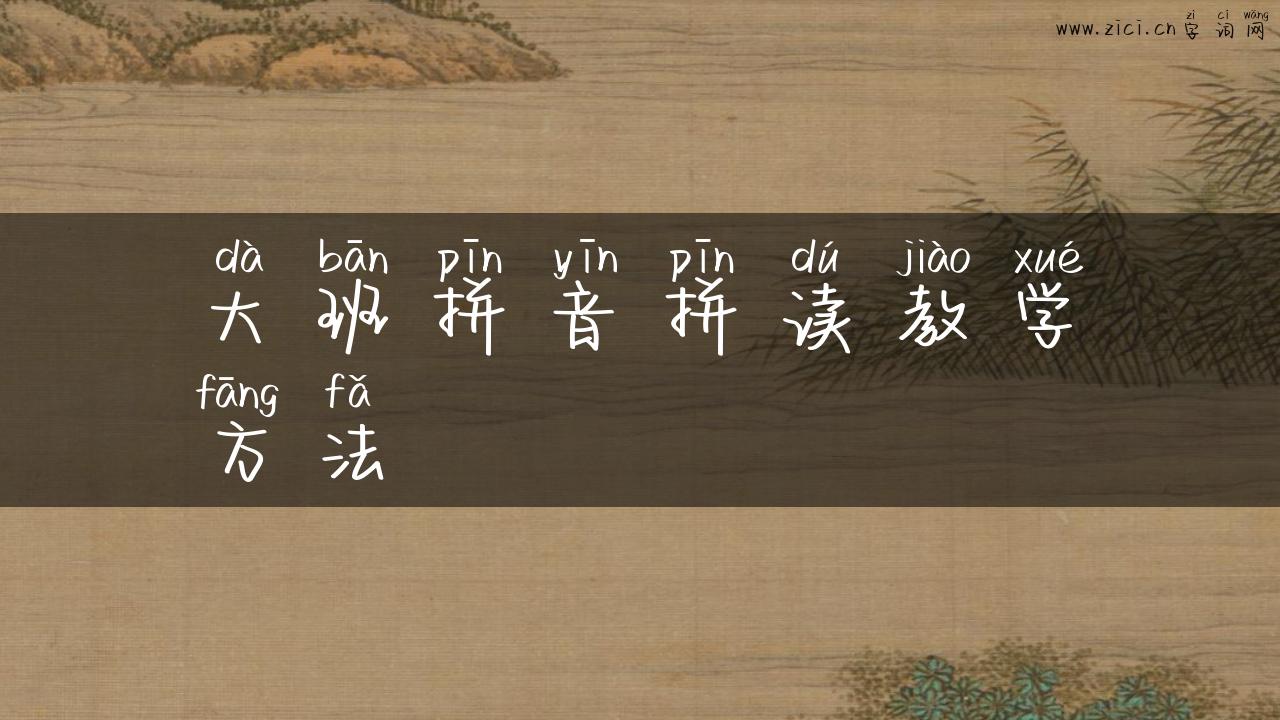 zì cí wǎng
www.zici.cn 字 词 网
dà bān pīn yīn pīn dú jiào xué
大 班 拼 音 拼 读 教 学
fāng fǎ
方 法